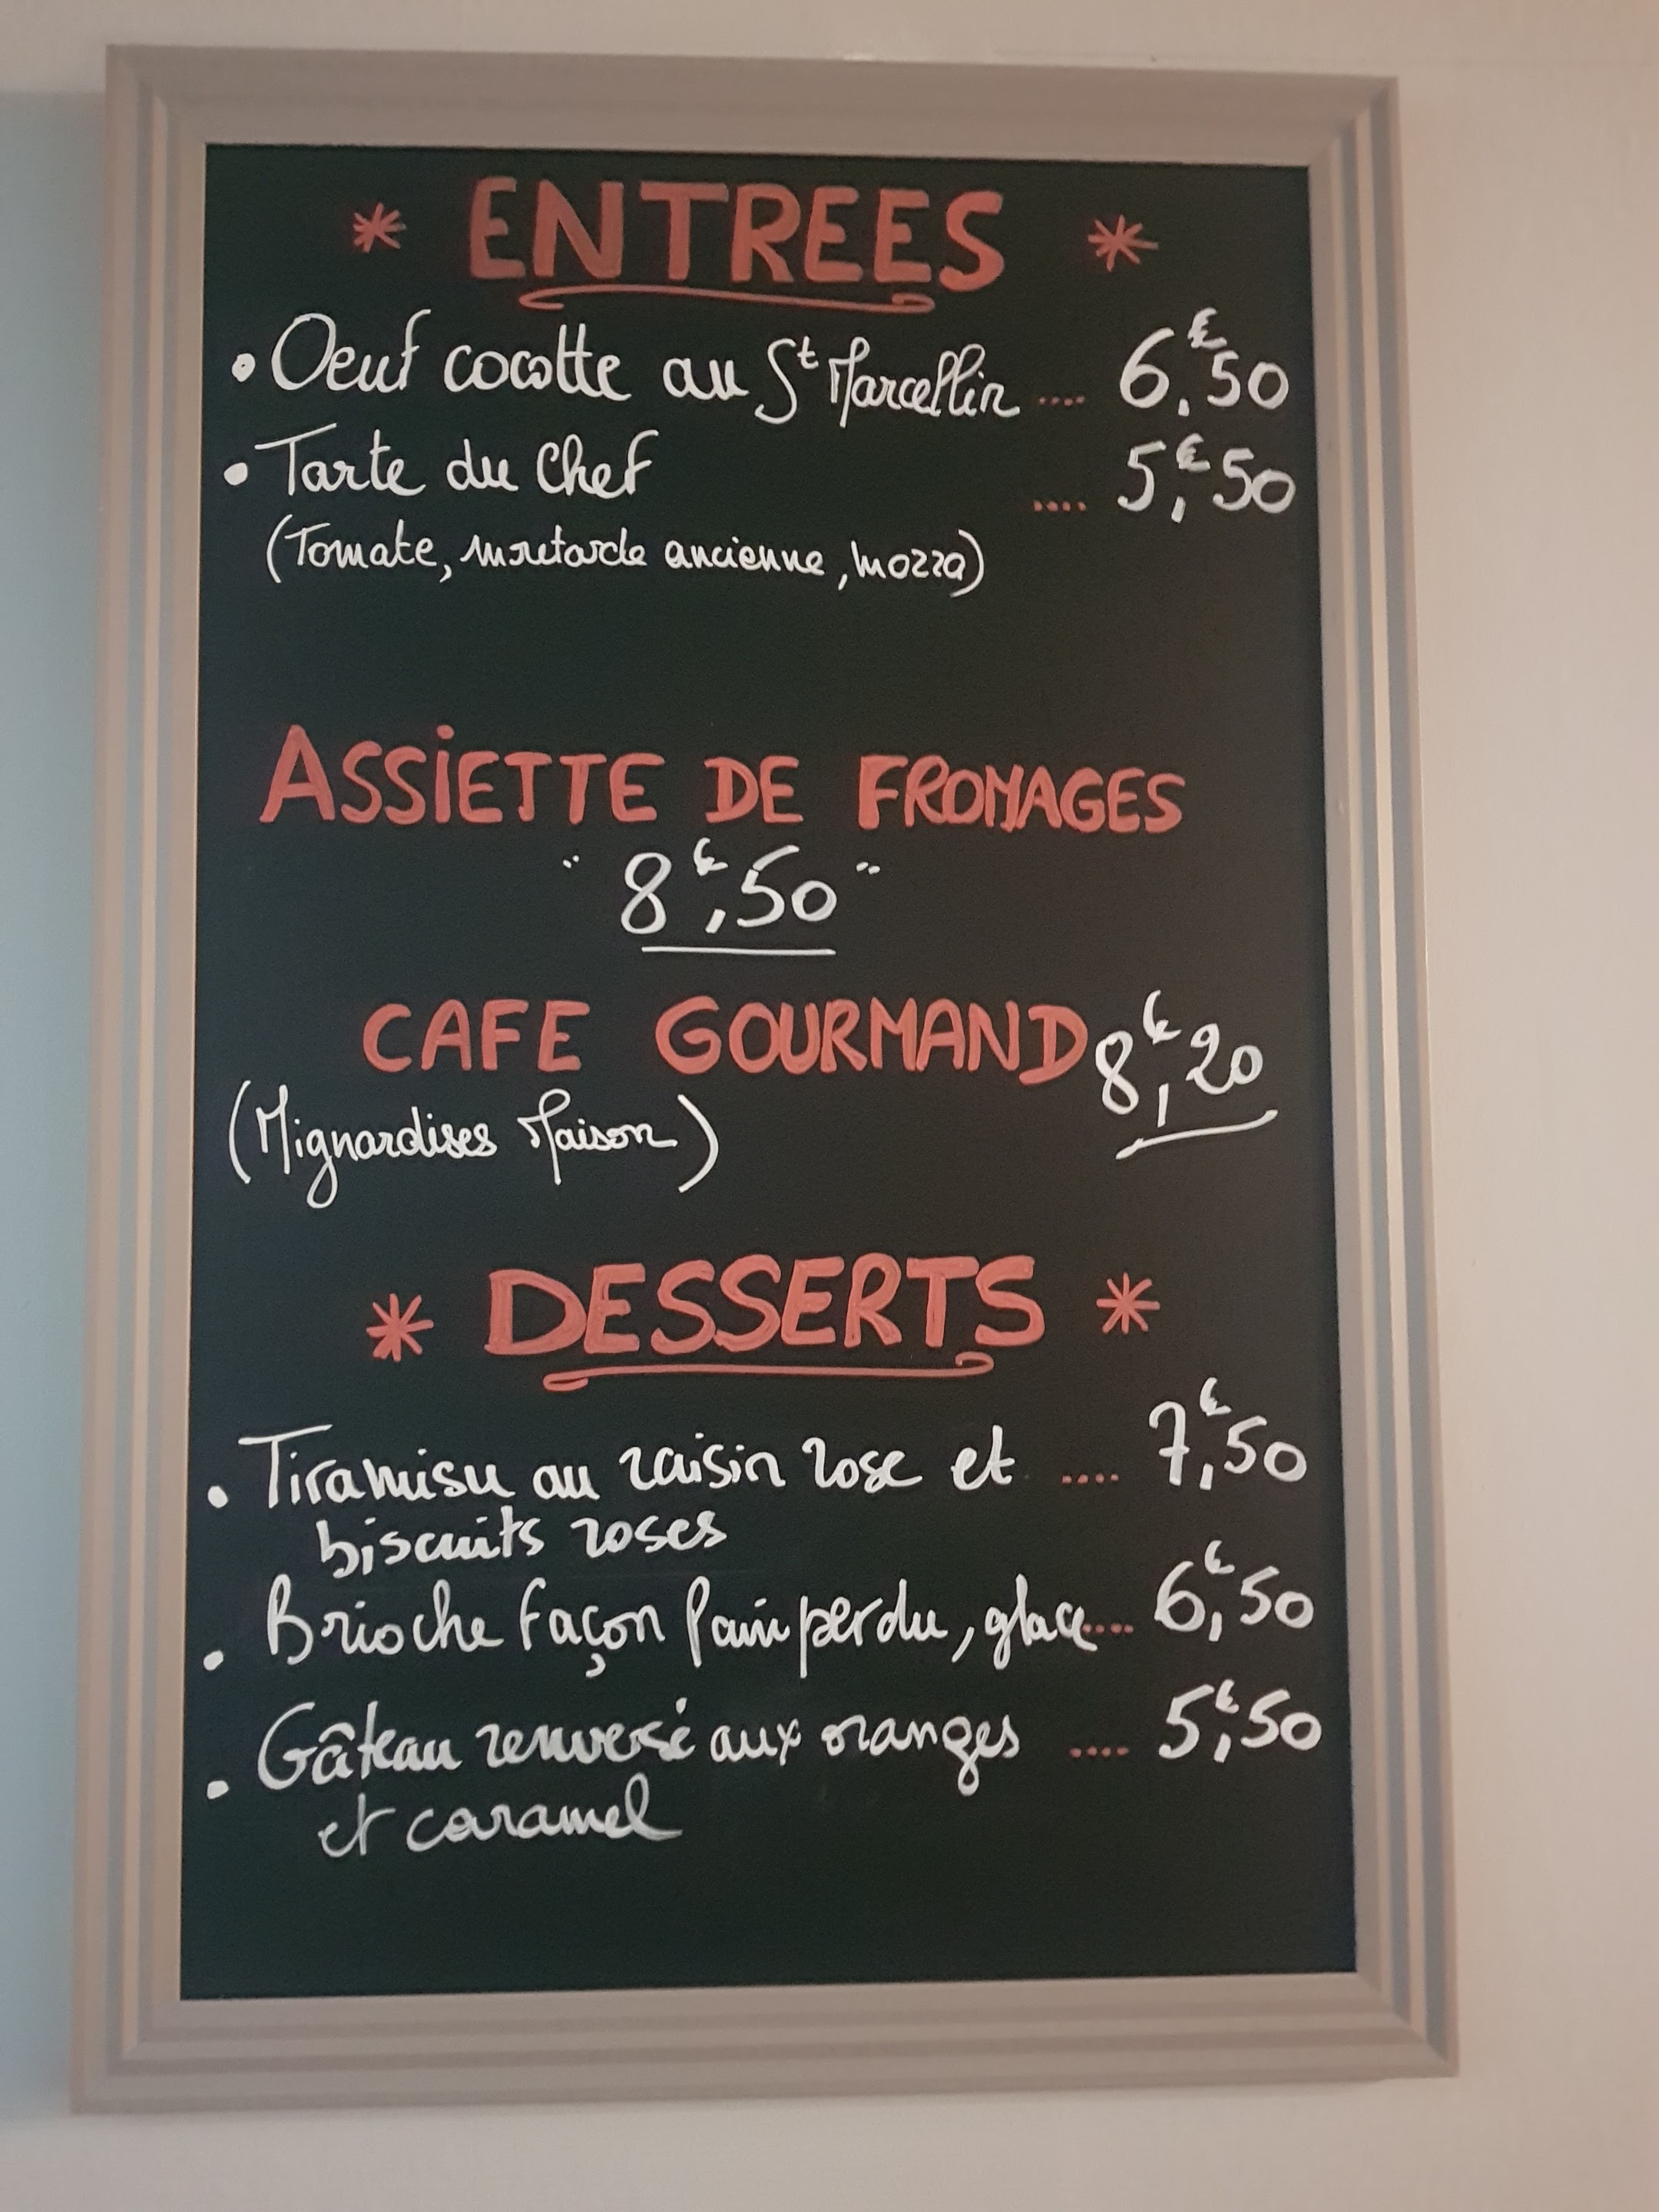 * ENTREES *
• Oeuf cocotte au St Marcellin .... 6,€50
• Tarte du Chef .... 5,€50
(Tomate, moutarde ancienne, mozza)
ASSiETTE DE FROMAGES
" 8€,50 "
CAFE GOURMAND 8€,20
(Mignardises Maison)
* DESSERTS *
• Tiramisu au raisin rose et .... 7,€50
biscuits roses
• Brioche façon Pain perdu, glace.... 6,€50
• Gâteau renversé aux oranges .... 5,€50
et caramel